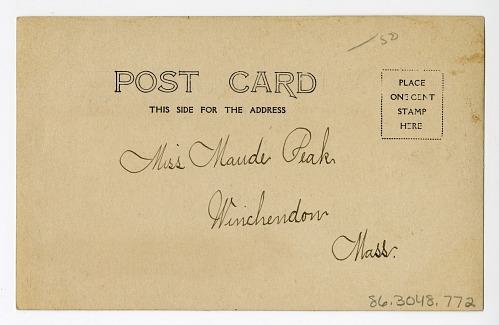 50
POST CARD
THIS SIDE FOR THE ADDRESS
PLACE
ONE CENT
STAMP
HERE
Miss Maude Peak
Winchendon
Mass.
86.3048.772